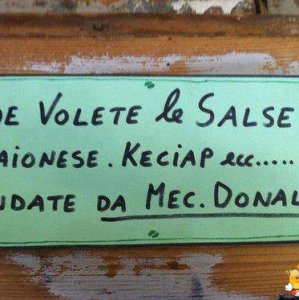 E VOLETE le SALSE
AIONESE. KECIAP ecc.....
NDATE DA MEC. DONAL